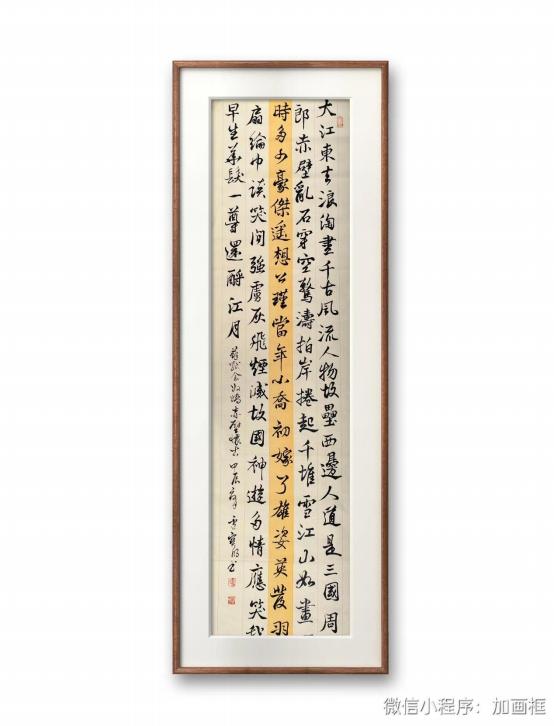 大江東去浪淘盡千古風流人物故壘西邊人道是三國周
郎赤壁亂石穿空驚濤拍岸捲起千堆雪江山如畫一
時多少豪傑遙想公瑾當年小喬初嫁了雄姿英發羽
扇綸巾談笑間強虜灰飛煙滅故國神遊多情應笑我
早生華髮一尊還酹江月
蘇軾念奴嬌赤壁懷古 甲辰
微信小程序：加画框